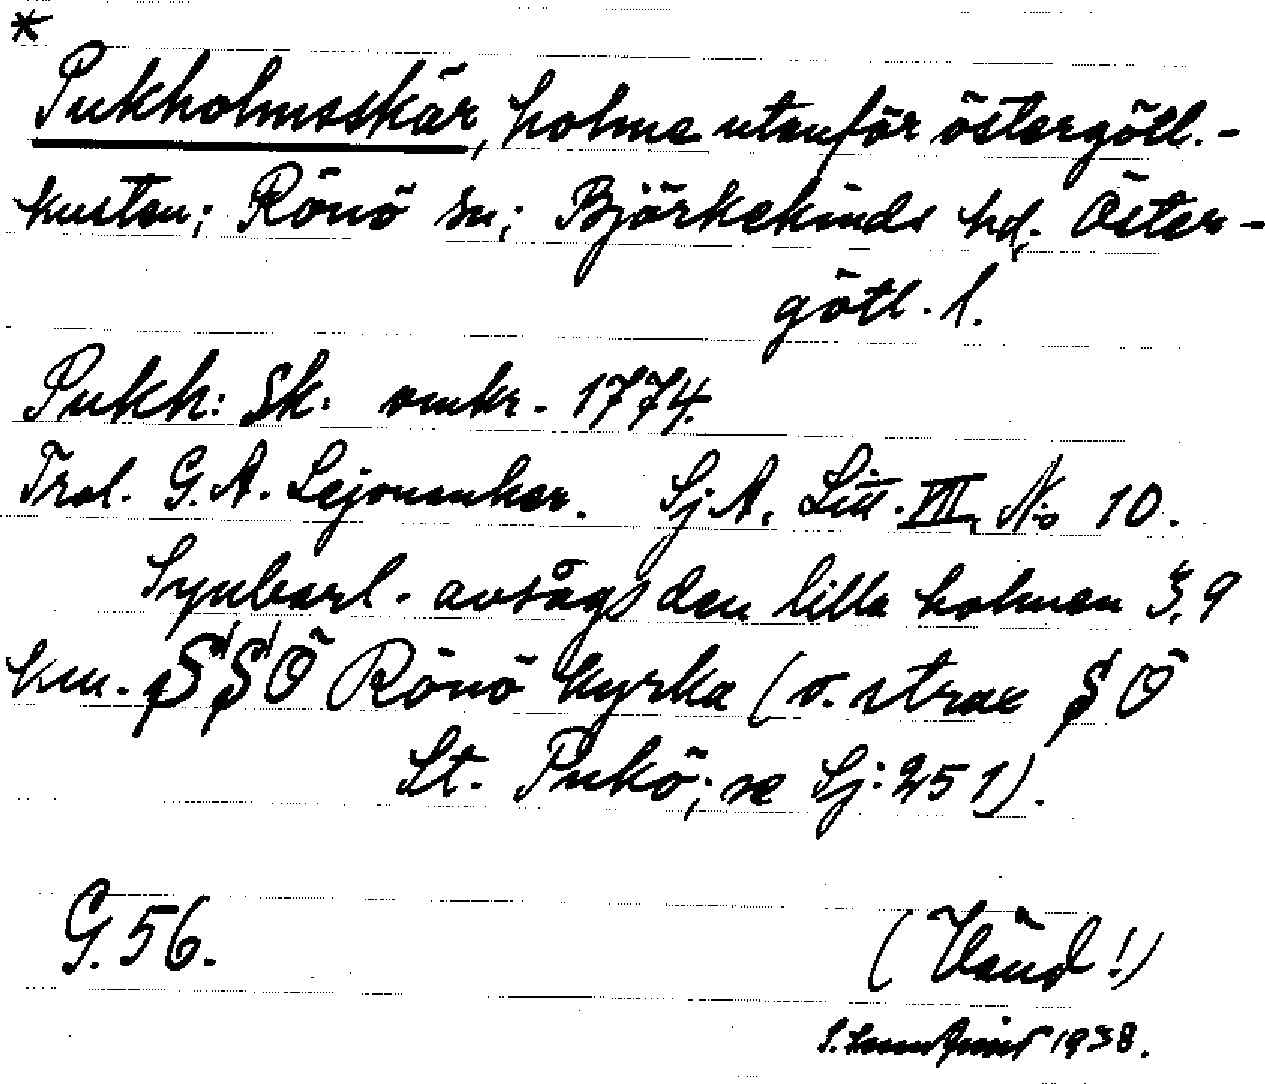 *
Pukholmsskär, holme utanför östergötl.-
kusten; Rönö sn; Björkekinds hd. Öster-
götl. l.
Pukh: Sk. omkr. 1774.
Trol. G. A. Lejonankar. Sj. A. Litt. VII, No 10.
Synbarl. avsågs den lilla holmen 3,9
km. SSÖ Rönö kyrka (o. strax SÖ
St. Pukö; se Sj: 251).
G. 56.
(Vänd!)
1938.